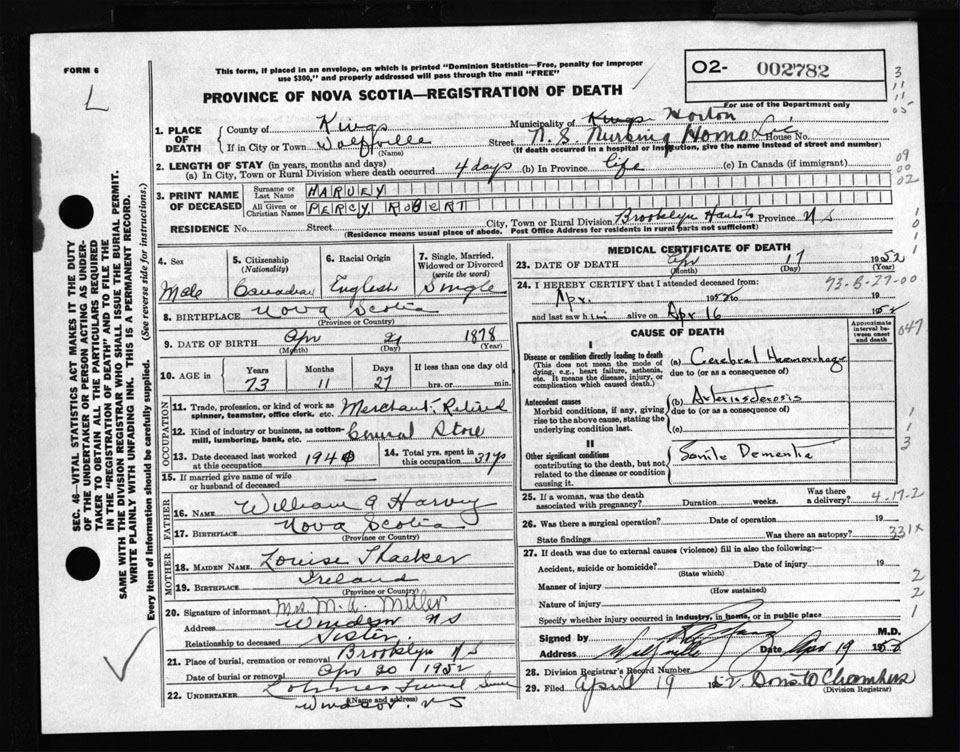 FORM 6
This form, if placed in an envelope, on which is printed "Dominion Statistics—Free, penalty for improper
use $300," and properly addressed will pass through the mail "FREE"
O2- 002782
For use of the Department only
PROVINCE OF NOVA SCOTIA—REGISTRATION OF DEATH
1. PLACE OF DEATH { County of Kings Municipality of Kings Horton
If in City or Town Wolfville (Name) Street N. S. Nursing Home House No.
(If death occurred in a hospital or institution, give the name instead of street and number)
2. LENGTH OF STAY (in years, months and days)
(a) In City, Town or Rural Division where death occurred 4 days (b) In Province life (c) In Canada (if immigrant)
3. PRINT NAME OF DECEASED { Surname or Last Name HARVEY
All Given or Christian Names PERCY ROBERT
RESIDENCE No. Street City, Town or Rural Division Brooklyn Hants Province N S
(Residence means usual place of abode. Post Office Address for residents in rural parts not sufficient)
4. Sex Male
5. Citizenship (Nationality) Canadian
6. Racial Origin English
7. Single, Married, Widowed or Divorced (write the word) Single
8. BIRTHPLACE Nova Scotia
(Province or Country)
9. DATE OF BIRTH Apr 21 1878
(Month) (Day) (Year)
10. AGE in { Years 73 Months 11 Days 27 If less than one day old hrs. or min.
OCCUPATION
11. Trade, profession, or kind of work as spinner, teamster, office clerk, etc. Merchant, Retired
12. Kind of industry or business, as cotton-mill, lumbering, bank, etc. General Store
13. Date deceased last worked at this occupation 1940
14. Total yrs. spent in this occupation 31 yrs
15. If married give name of wife or husband of deceased
FATHER
16. NAME William G Harvey
17. BIRTHPLACE Nova Scotia
(Province or Country)
MOTHER
18. MAIDEN NAME Louise Thacker
19. BIRTHPLACE Ireland
(Province or Country)
20. Signature of informant Mrs M. L. Miller
Address Windsor NS
Relationship to deceased Sister
21. Place of burial, cremation or removal Brooklyn N S
Date of burial or removal Apr 20 1952
22. UNDERTAKER Funeral
(Name and address)
Windsor, N S
MEDICAL CERTIFICATE OF DEATH
23. DATE OF DEATH Apr 17 1952
(Month) (Day) (Year)
24. I HEREBY CERTIFY that I attended deceased from: 73-8-27-00
Apr. 1952 to 19
and last saw him alive on Apr 16 1952
CAUSE OF DEATH
Approximate interval between onset and death
I
Disease or condition directly leading to death
(This does not mean the mode of dying, e.g., heart failure, asthenia, etc. It means the disease, injury, or complication which caused death.)
(a) Cerebral Haemorrhage
due to (or as a consequence of)
Antecedent causes
Morbid conditions, if any, giving rise to the above cause, stating the underlying condition last.
(b) Arteriosclerosis
due to (or as a consequence of)
(c)
II
Other significant conditions
contributing to the death, but not related to the disease or condition causing it.
Senile Dementia
25. If a woman, was the death associated with pregnancy? Duration weeks. Was there a delivery? 4-17-2
26. Was there a surgical operation? Date of operation 19
State findings Was there an autopsy? 331x
27. If death was due to external causes (violence) fill in also the following:—
Accident, suicide or homicide? Date of injury 19
(State which)
Manner of injury
(How sustained)
Nature of injury
Specify whether injury occurred in industry, in home, or in public place
Signed by M.D.
Address Wolfville Date Apr 19 1952
28. Division Registrar's Record Number
29. Filed April 19 1952. Chambers
(Division Registrar)
SEC. 46—VITAL STATISTICS ACT MAKES IT THE DUTY
OF THE UNDERTAKER OR PERSON ACTING AS UNDER-
TAKER TO OBTAIN ALL THE PARTICULARS REQUIRED
IN THE "REGISTRATION OF DEATH" AND TO FILE THE
SAME WITH THE DIVISION REGISTRAR WHO SHALL ISSUE THE BURIAL PERMIT.
WRITE PLAINLY WITH UNFADING INK. THIS IS A PERMANENT RECORD.
Every item of Information should be carefully supplied. (See reverse side for instructions.)
3
11
11
05
09
00
02
1
0
1
047
1
1
3
2
2
1